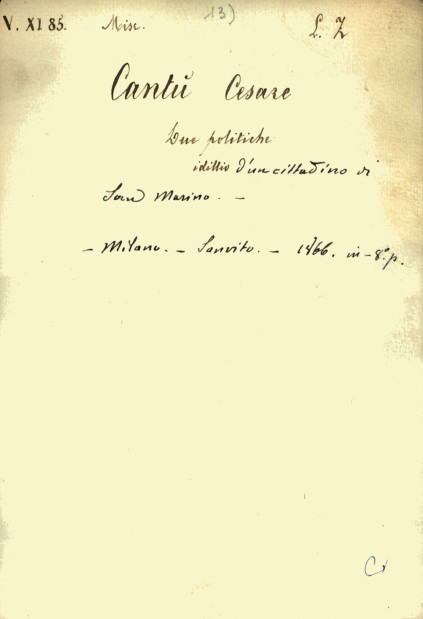 13)
V. XI 85. Misc. L. Z
Cantù Cesare
Due politiche
idillio d'un cittadino di
San Marino. –
– Milano. – Sanvito. – 1866. in-8°. p.